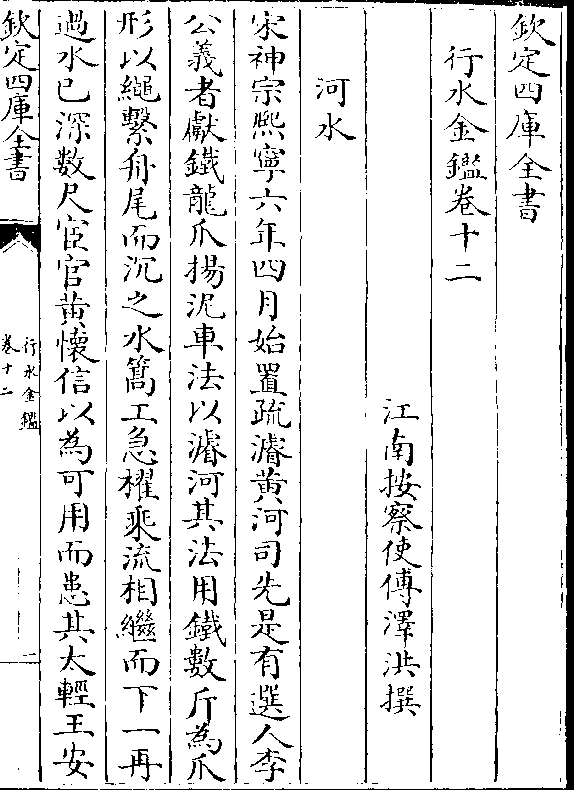 欽定四庫全書
行水金鑑卷十二
江南按察使傅澤洪撰
河水
宋神宗熙寧六年四月始置疏濬黃河司先是有選人李
公義者獻鐵龍爪揚泥車法以濬河其法用鐵數斤為爪
形以繩繫舟尾而沉之水篙工急櫂乘流相繼而下一再
過水已深數尺宦官黃懷信以為可用而患其太輕王安
欽定四庫全書
行水金鑑
卷十二
一